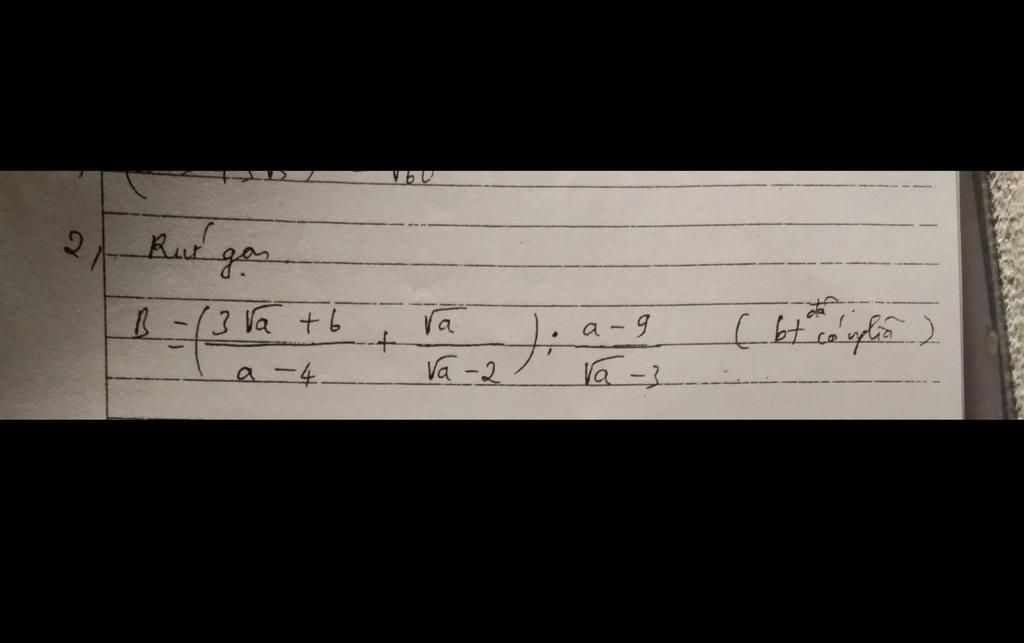 2, Rút gọn
B = ( (3√a + 6)/(a - 4) + √a/(√a - 2) ) : (a - 9)/(√a - 3) ( bt đã có nghĩa )